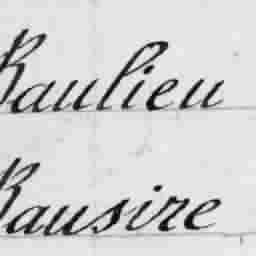 Raulieu
Rausire